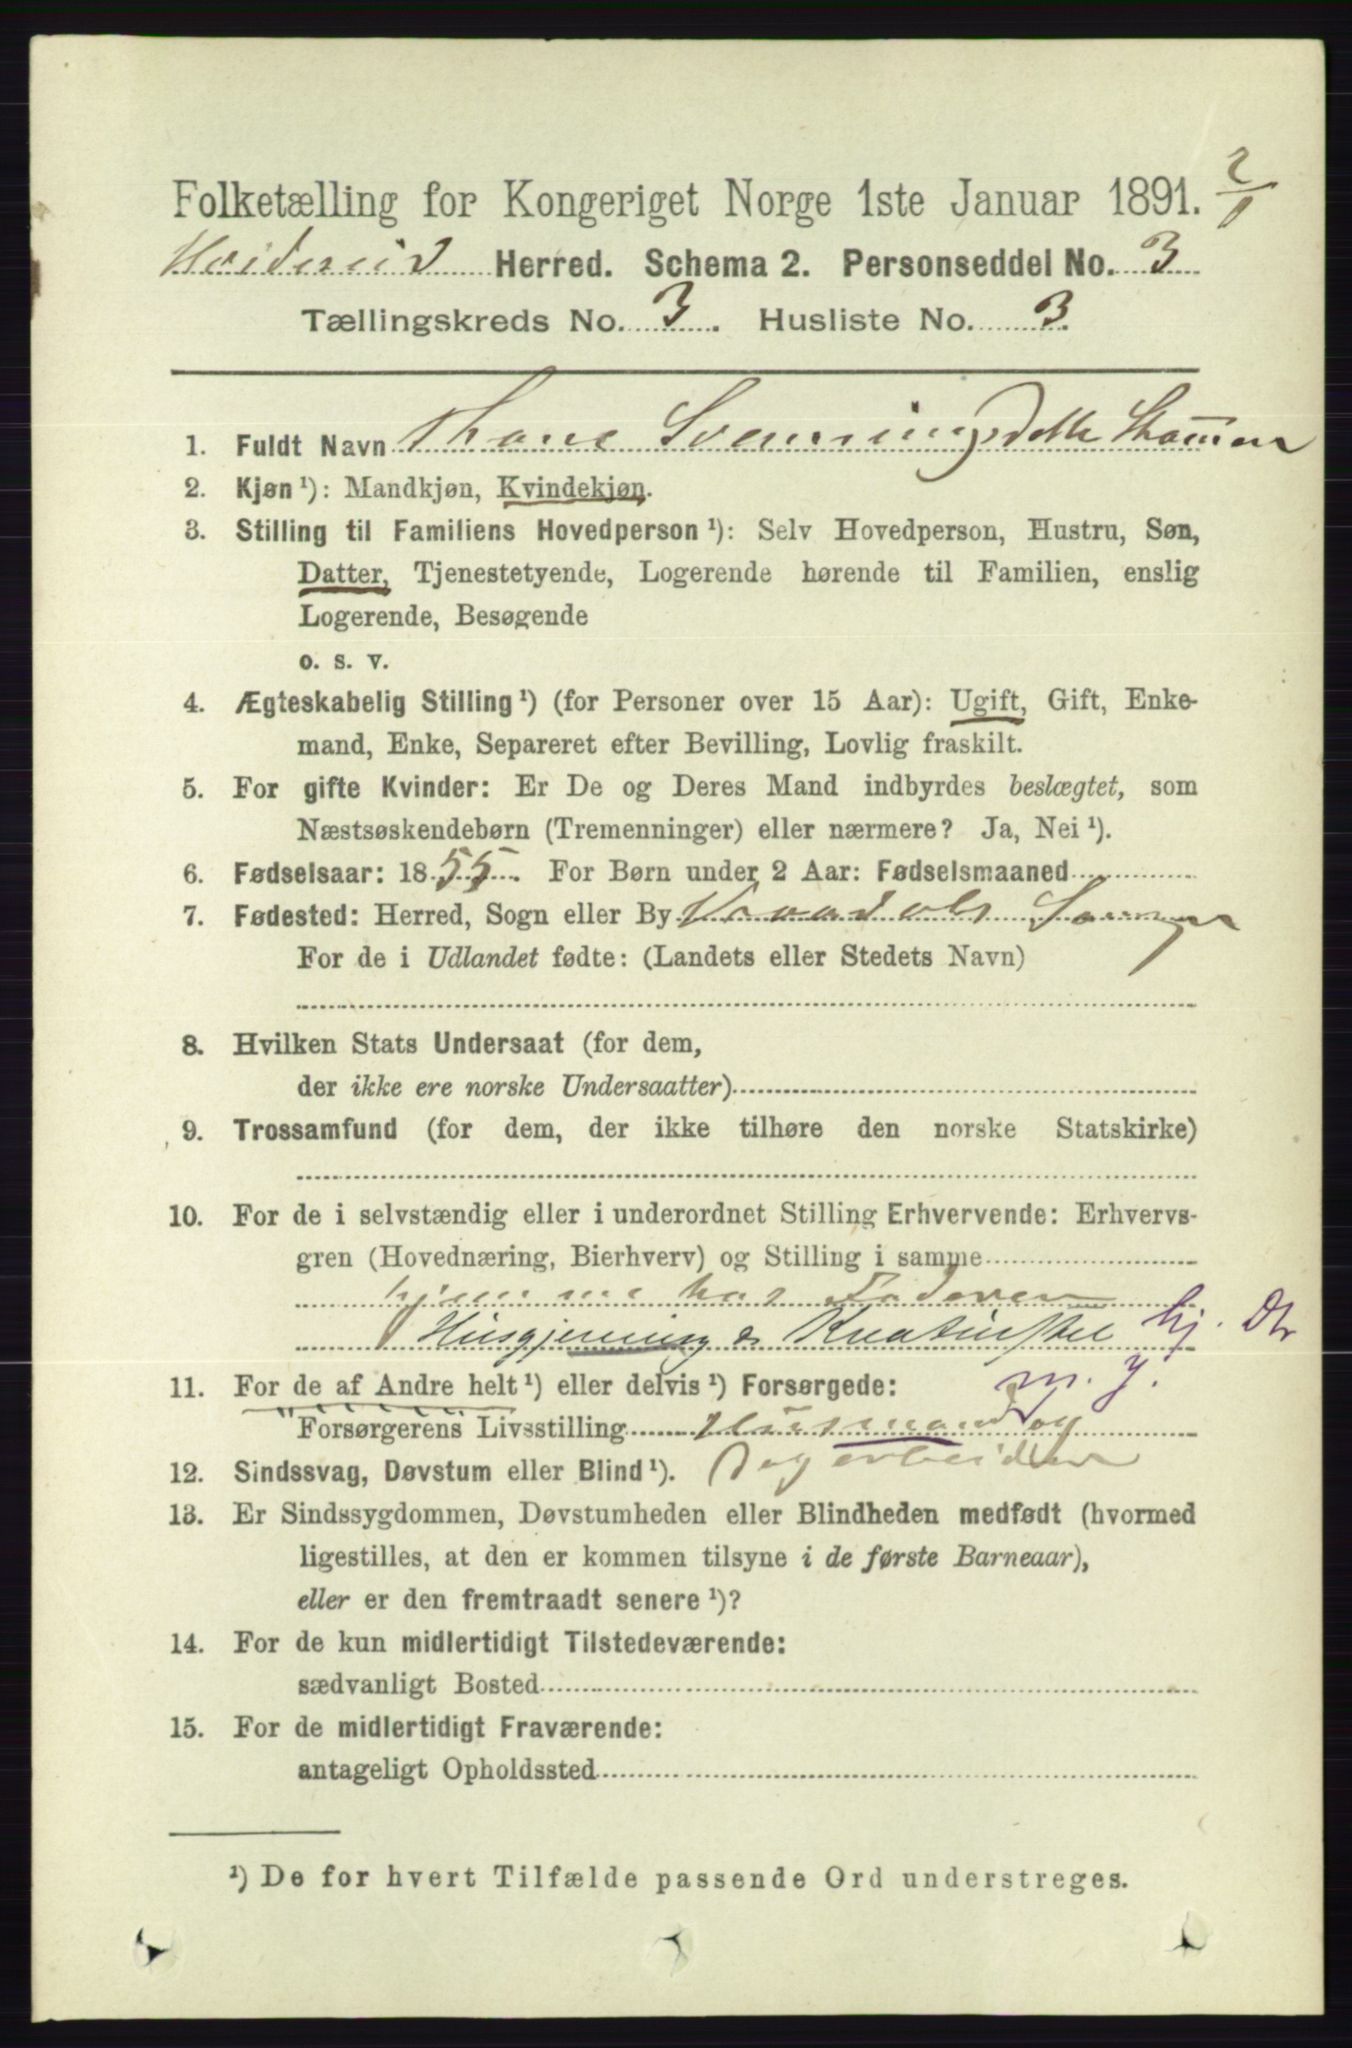 Folketælling for Kongeriget Norge 1ste Januar 1891. 2/1
Hvidereid Herred. Schema 2. Personseddel No. 3
Tællingskreds No. 3. Husliste No. 3.
1. Fuldt Navn Thone Svenningsdatter
2. Kjøn ¹): Mandkjøn, Kvindekjøn.
3. Stilling til Familiens Hovedperson ¹): Selv Hovedperson, Hustru, Søn,
Datter, Tjenestetyende, Logerende hørende til Familien, enslig
Logerende, Besøgende
o. s. v.
4. Ægteskabelig Stilling ¹) (for Personer over 15 Aar): Ugift, Gift, Enke-
mand, Enke, Separeret efter Bevilling, Lovlig fraskilt.
5. For gifte Kvinder: Er De og Deres Mand indbyrdes beslægtet, som
Næstsøskendebørn (Tremenninger) eller nærmere? Ja, Nei ¹).
6. Fødselsaar: 1855. For Børn under 2 Aar: Fødselsmaaned
7. Fødested: Herred, Sogn eller By Vraadals Sogn
For de i Udlandet fødte: (Landets eller Stedets Navn)
8. Hvilken Stats Undersaat (for dem,
der ikke ere norske Undersaatter)
9. Trossamfund (for dem, der ikke tilhøre den norske Statskirke)
10. For de i selvstændig eller i underordnet Stilling Erhvervende: Erhvervs-
gren (Hovednæring, Bierhverv) og Stilling i samme
hjemme hos Faderen
Husgjerning & Kreaturstel hj. Dtr
11. For de af Andre helt ¹) eller delvis ¹) Forsørgede: m. j.
Forsørgerens Livsstilling Husmand og
12. Sindssvag, Døvstum eller Blind ¹). Dagarbeider
13. Er Sindssygdommen, Døvstumheden eller Blindheden medfødt (hvormed
ligestilles, at den er kommen tilsyne i de første Barneaar),
eller er den fremtraadt senere ¹)?
14. For de kun midlertidigt Tilstedeværende:
sædvanligt Bosted
15. For de midlertidigt Fraværende:
antageligt Opholdssted
¹) De for hvert Tilfælde passende Ord understreges.